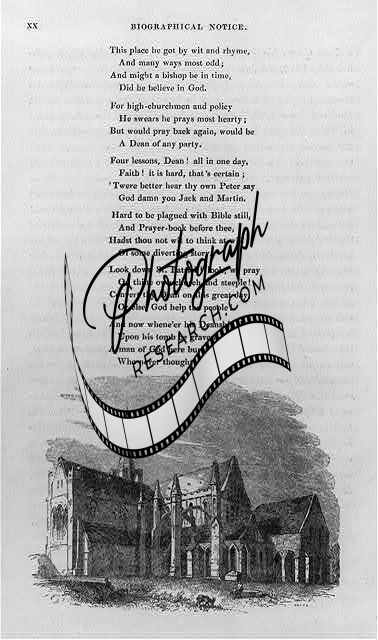 xx
BIOGRAPHICAL NOTICE.
This place he got by wit and rhyme,
And many ways most odd;
And might a bishop be in time,
Did he believe in God.
For high-churchmen and policy
He swears he prays most hearty;
But would pray back again, would be
A Dean of any party.
Four lessons, Dean! all in one day,
Faith! it is hard, that's certain;
'Twere better hear thy own Peter say
God damn you Jack and Martin.
Hard to be plagued with Bible still,
And Prayer-book before thee,
Hadst thou not wit to think at
Of some diverting story
Look down St. Patrick, look, we pray
On thine own church and steeple!
Convert this Dean on this great day,
Or else God help the people
And now whene'er his Deanship
Upon his tomb be graven
A man of God here
Who never thought
Photograph
RESEARCH.COM